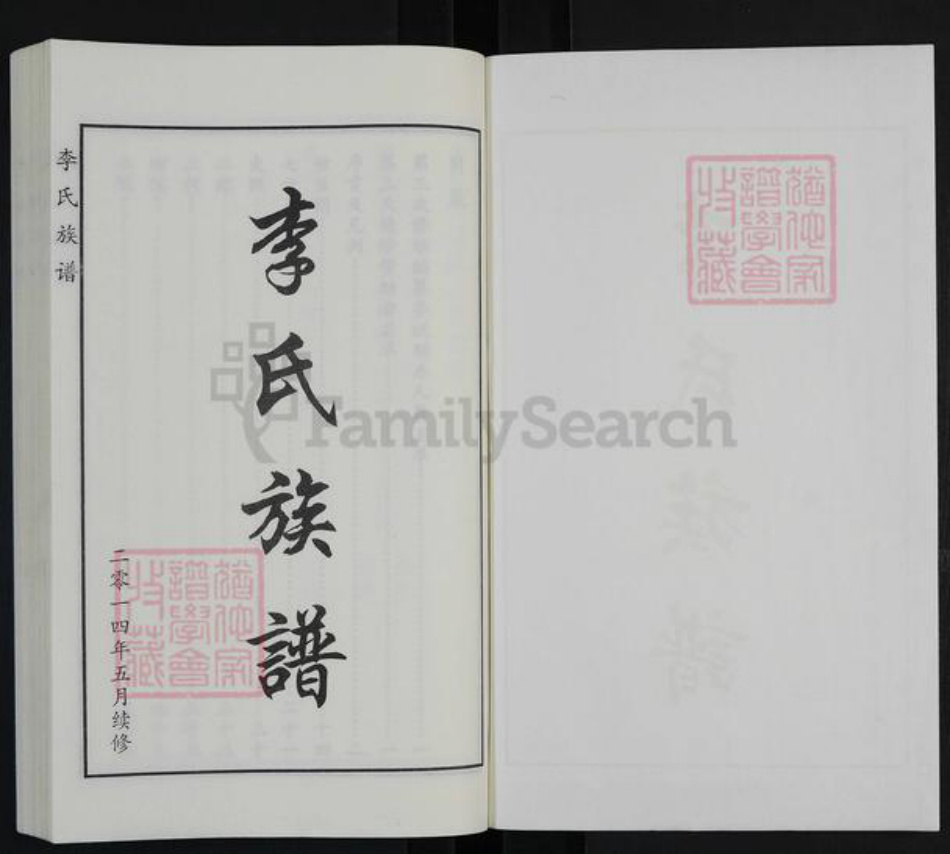 猶他家
譜學會
收藏
李氏族譜
二零一四年五月续修
猶他家
譜學會
收藏
李氏族谱
FamilySearch